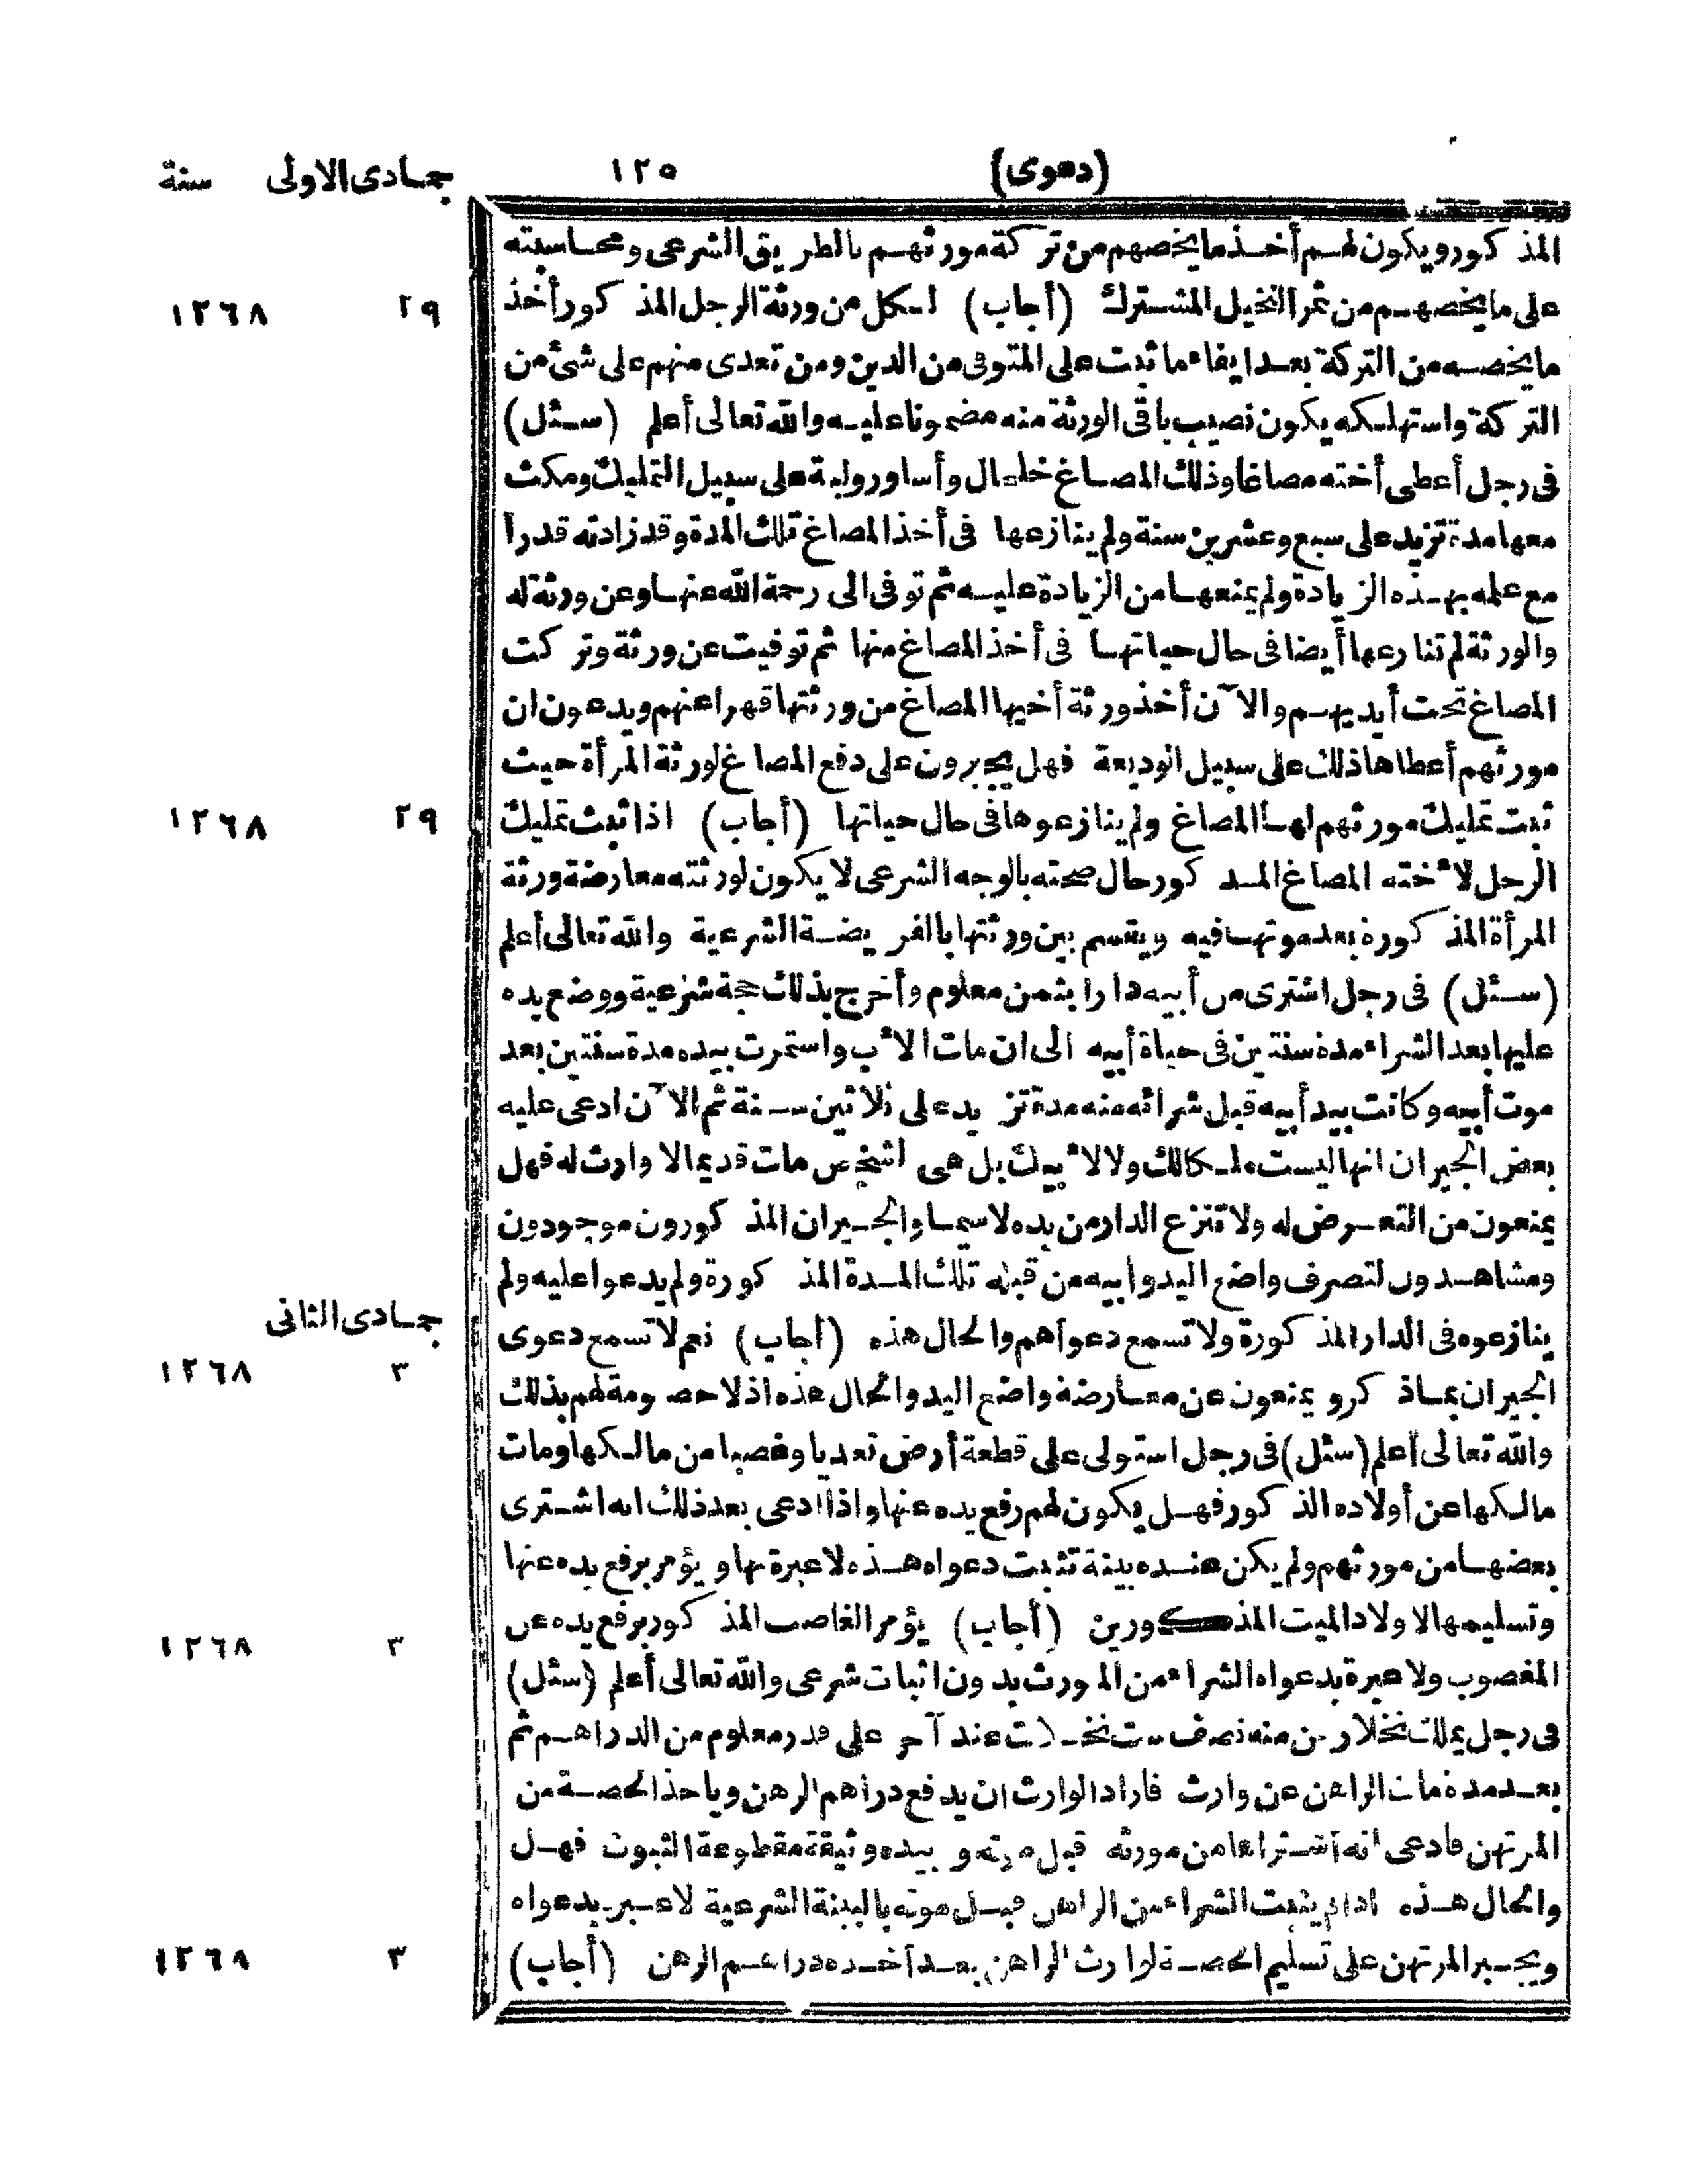 (دعوى) ١٢٥ جمادى الاولى سنة
المذكور ويكون لهم أخذ ما يخصهم من تركة مورثهم بالطريق الشرعى ومحاسبته
على ما يخصهم من ثمر النخيل المشترك (أجاب) لكل من ورثة الرجل المذكور أخذ ٢٩ ١٢٦٨
ما يخصه من التركة بعد ايفاء ما ثبت على المتوفى من الدين ومن تعدى منهم على شئ من
التركة واستهلكه يكون نصيب باقى الورثة منه مضمونا عليه والله تعالى أعلم (سئل)
فى رجل أعطى أخته مصاغا وذلك المصاغ خلخال وأساور ولبة على سبيل التمليك ومكث
معها مدة تزيد على سبع وعشرين سنة ولم ينازعها فى أخذ المصاغ تلك المدة وقد زادته قدرا
مع علمه بهذه الزيادة ولم يمنعها من الزيادة عليه ثم توفى الى رحمة الله عنها وعن ورثة له
والورثة لم تنازعها أيضا فى حال حياتها فى أخذ المصاغ منها ثم توفيت عن ورثة وتركت
المصاغ تحت أيديهم والآن أخذ ورثة أخيها المصاغ من ورثتها قهرا عنهم ويدعون ان
مورثهم أعطاها ذلك على سبيل الوديعة فهل يجبرون على دفع المصاغ لورثة المرأة حيث
ثبت تمليك مورثهم لها المصاغ ولم ينازعوها فى حال حياتها (أجاب) اذا ثبت تمليك ٢٩ ١٢٦٨
الرجل لأخته المصاغ المذكور حال صحته بالوجه الشرعى لا يكون لورثته معارضة ورثة
المرأة المذكورة بعد موتها فيه ويقسم بين ورثتها بالفريضة الشرعية والله تعالى أعلم
(سئل) فى رجل اشترى من أبيه دارا بثمن معلوم وأخرج بذلك حجة شرعية ووضع يده
عليها بعد الشراء مدة سنتين فى حياة أبيه الى ان مات الأب واستمرت بيده مدة سنتين بعد
موت أبيه وكانت بيد أبيه قبل شرائه منه مدة تزيد على ثلاثين سنة ثم الآن ادعى عليه
بعض الجيران انها ليست ملكا لك ولا لأبيك بل هى لشخص مات قديما لا وارث له فهل
يمنعون من التعرض له ولا تنزع الدار من يده لا سيما والجيران المذكورون موجودون
ومشاهدون لتصرف واضع اليد وابيه من قبله تلك المدة المذكورة ولم يدعوا عليه ولم
جمادى الثانى
ينازعوه فى الدار المذكورة ولا تسمع دعواهم والحال هذه (أجاب) نعم لا تسمع دعوى ٣ ١٢٦٨
الجيران بما ذكر ويمنعون عن معارضة واضع اليد والحال هذه اذ لا خصومة لهم بذلك
والله تعالى أعلم (سئل) فى رجل استولى على قطعة أرض تعديا وغصبا من مالكها ومات
مالكها عن أولاده الذكور فهل يكون لهم رفع يده عنها واذا ادعى بعد ذلك انه اشترى
بعضها من مورثهم ولم يكن عنده بينة تثبت دعواه هذه لا عبرة بها ويؤمر برفع يده عنها
وتسليمها لاولاد الميت المذكورين (أجاب) يؤمر الغاصب المذكور برفع يده عن ٣ ١٢٦٨
المغصوب ولا عبرة بدعواه الشراء من المورث بدون اثبات شرعى والله تعالى أعلم (سئل)
فى رجل يملك نخلا رهن منه نصف ست نخلات عند آخر على قدر معلوم من الدراهم ثم
بعد مدة مات الراهن عن وارث فاراد الوارث ان يدفع دراهم الرهن وياخذ الحصة من
المرتهن فادعى انه اشتراها من مورثه قبل موته وبيده وثيقة مقطوعة الثبوت فهل
والحال هذه اذا لم يثبت الشراء من الراهن قبل موته بالبينة الشرعية لا عبرة بدعواه
ويجبر المرتهن على تسليم الحصة لوارث الراهن بعد أخذه دراهم الرهن (أجاب) ٣ ١٢٦٨